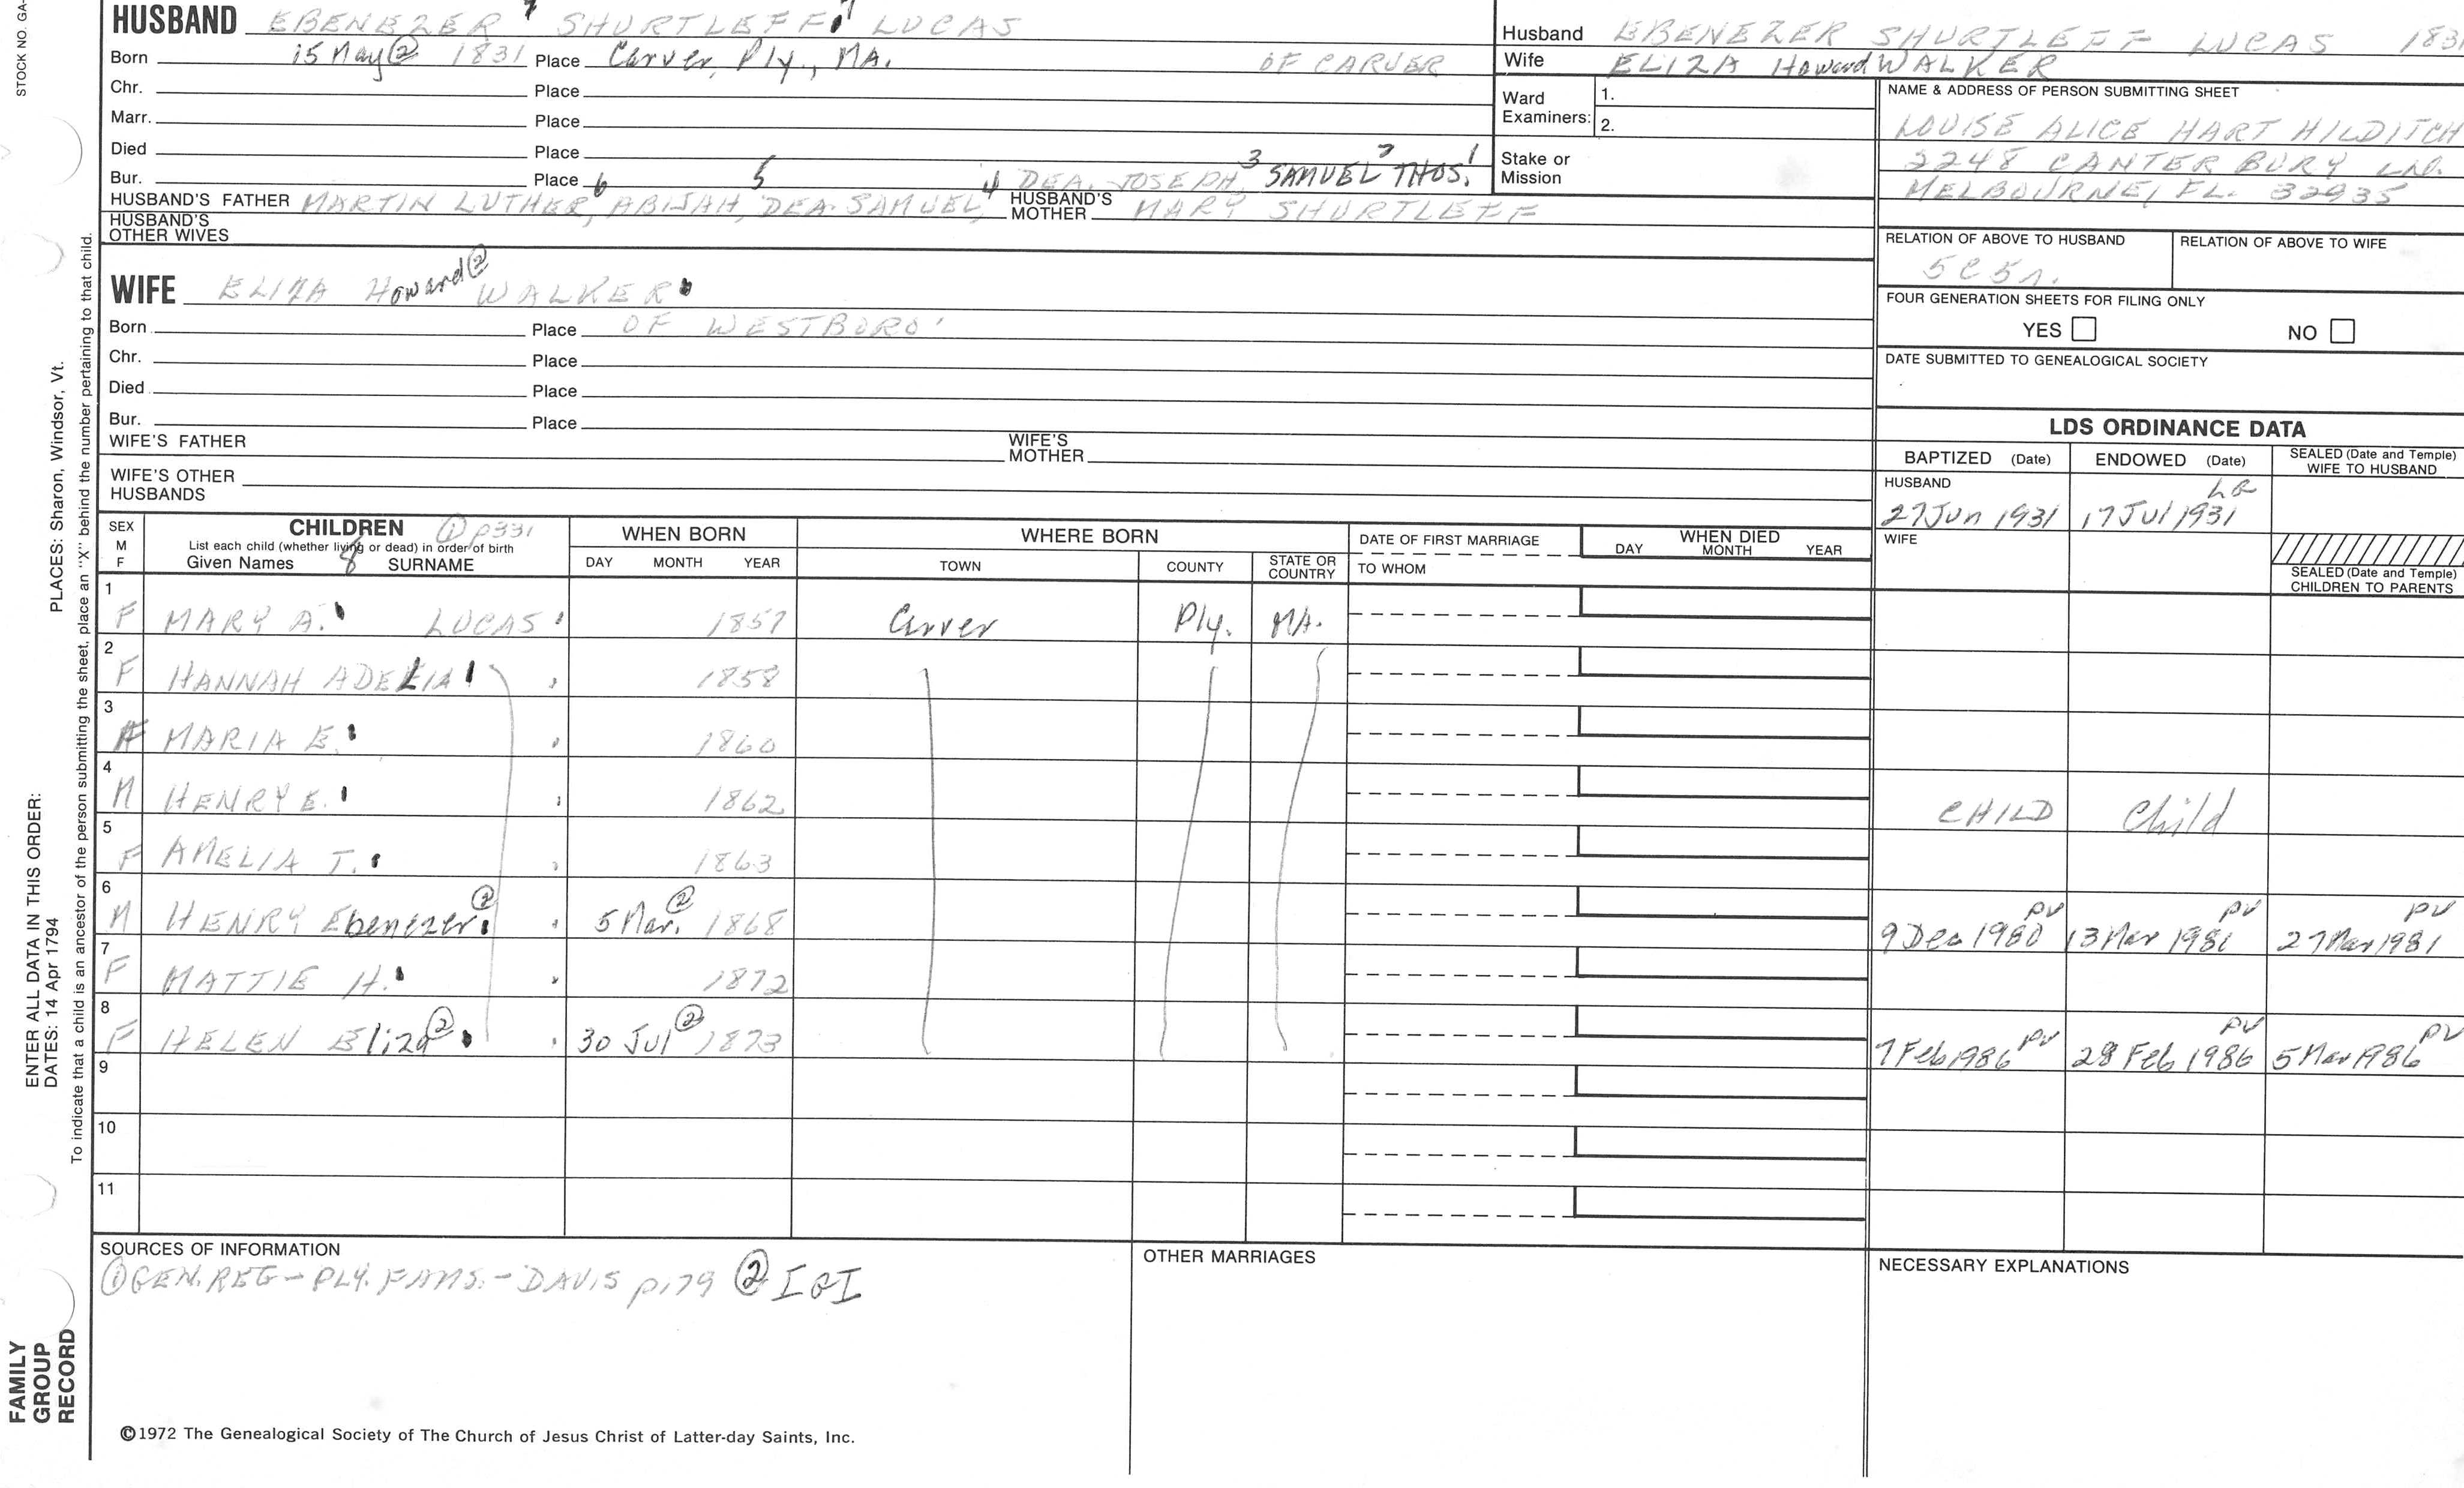 STOCK NO. GA-
HUSBAND EBENEZER 7 SHURTLEFF1 LUCAS
Born 15 May② 1831 Place Carver, Ply., MA. OF CARVER
Chr. Place
Marr. Place
Died Place
Bur. Place
6 5 4 DEA. JOSEPH, 3 SAMUEL 2 THOS. 1
HUSBAND'S FATHER MARTIN LUTHER, ABIJAH, DEA. SAMUEL, HUSBAND'S MOTHER MARY SHURTLEFF
HUSBAND'S OTHER WIVES
WIFE ELIZA Howard② WALKER
Born Place OF WESTBORO'
Chr. Place
Died Place
Bur. Place
WIFE'S FATHER WIFE'S MOTHER
WIFE'S OTHER HUSBANDS
Husband EBENEZER SHURTLEFF LUCAS 1831
Wife ELIZA Howard WALKER
Ward Examiners: 1.
2.
Stake or Mission
NAME & ADDRESS OF PERSON SUBMITTING SHEET
LOUISE ALICE HART HILDITCH
2248 CANTERBURY LN.
MELBOURNE, FL. 32935
RELATION OF ABOVE TO HUSBAND RELATION OF ABOVE TO WIFE
5C5r.
FOUR GENERATION SHEETS FOR FILING ONLY
YES NO
DATE SUBMITTED TO GENEALOGICAL SOCIETY
LDS ORDINANCE DATA
BAPTIZED (Date) ENDOWED (Date) SEALED (Date and Temple) WIFE TO HUSBAND
HUSBAND
27 Jun 1931 17 Jul 1931
WIFE
SEALED (Date and Temple) CHILDREN TO PARENTS
SEX M F CHILDREN ① p331 WHEN BORN WHERE BORN DATE OF FIRST MARRIAGE WHEN DIED
List each child (whether living or dead) in order of birth
Given Names 8 SURNAME DAY MONTH YEAR TOWN COUNTY STATE OR COUNTRY TO WHOM DAY MONTH YEAR
1 F MARY A. LUCAS 1857 Carver Ply. MA.
2 F HANNAH ADELIA 1858
3 F MARIA E. 1860
4 M HENRY E. 1862 CHILD Child
5 F AMELIA T. 1863
6 M HENRY Ebenezer② 5 Mar.② 1868 9 Dec 1980 PV 13 Mar 1981 PV 27 Mar 1981 PV
7 F MATTIE H. 1872
8 F HELEN Eliza② 30 Jul② 1873 7 Feb 1986 PV 28 Feb 1986 PV 5 Mar 1986 PV
9
10
11
SOURCES OF INFORMATION
① GEN. REG - PLY. FAMS. - DAVIS p179 ② IGI
OTHER MARRIAGES
NECESSARY EXPLANATIONS
©1972 The Genealogical Society of The Church of Jesus Christ of Latter-day Saints, Inc.
PLACES: Sharon, Windsor, Vt.
ENTER ALL DATA IN THIS ORDER:
DATES: 14 Apr 1794
To indicate that a child is an ancestor of the person submitting the sheet, place an "X" behind the number pertaining to that child.
FAMILY
GROUP
RECORD